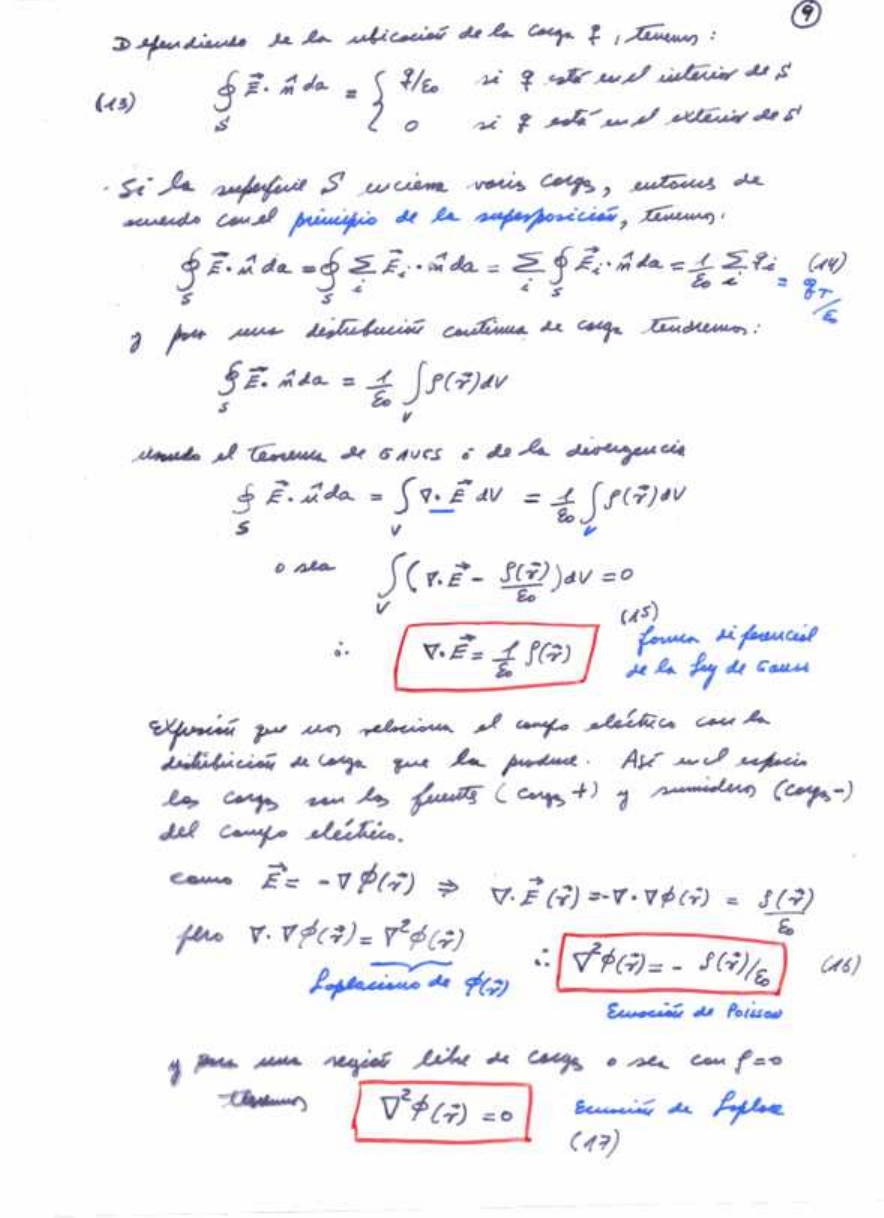 9
Dependiendo de la ubicación de la carga q, tenemos:
(13) ∮_S E⃗ · n̂ da = { q/ε₀ si q está en el interior de S
0 si q está en el exterior de S
· Si la superficie S encierra varias cargas, entonces de
acuerdo con el principio de la superposición, tenemos.
∮_S E⃗ · n̂ da = ∮_S Σ_i E⃗_i · n̂ da = Σ_i ∮_S E⃗_i · n̂ da = 1/ε₀ Σ_i q_i = q_T/ε₀ (14)
y para una distribución continua de carga tendremos:
∮_S E⃗ · n̂ da = 1/ε₀ ∫_V ρ(r⃗) dV
usando el teorema de GAUSS ó de la divergencia
∮_S E⃗ · n̂ da = ∫_V ∇ · E⃗ dV = 1/ε₀ ∫_V ρ(r⃗) dV
o sea ∫_V (∇ · E⃗ - ρ(r⃗)/ε₀) dV = 0
∴ ∇ · E⃗ = 1/ε₀ ρ(r⃗) (15)
forma diferencial
de la Ley de Gauss
Expresión que nos relaciona el campo eléctrico con la
distribución de carga que la produce. Así en el espacio
las cargas son las fuentes (cargas +) y sumideros (cargas -)
del campo eléctrico.
como E⃗ = -∇φ(r⃗) ⇒ ∇ · E⃗(r⃗) = -∇ · ∇φ(r⃗) = ρ(r⃗)/ε₀
pero ∇ · ∇φ(r⃗) = ∇²φ(r⃗)
Laplaciano de φ(r⃗)
∴ ∇²φ(r⃗) = - ρ(r⃗)/ε₀ (16)
Ecuación de Poisson
y para una región libre de cargas o sea con ρ=0
tenemos ∇²φ(r⃗) = 0 Ecuación de Laplace
(17)